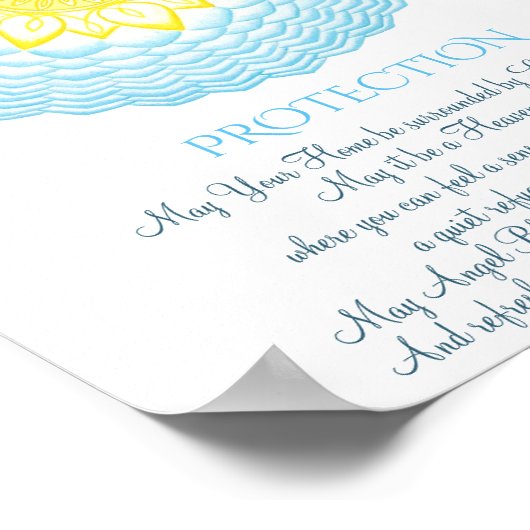 PROTECTION
May Your Home be surrounded by
May it be a
where you can feel a
a quiet
May Angel
And